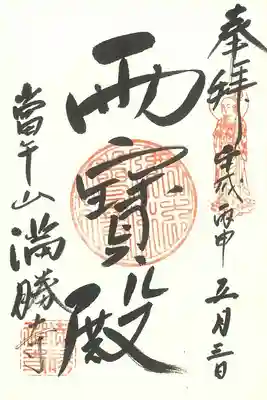 奉拝
平成丙申五月三日
寶殿
當午山
満勝寺